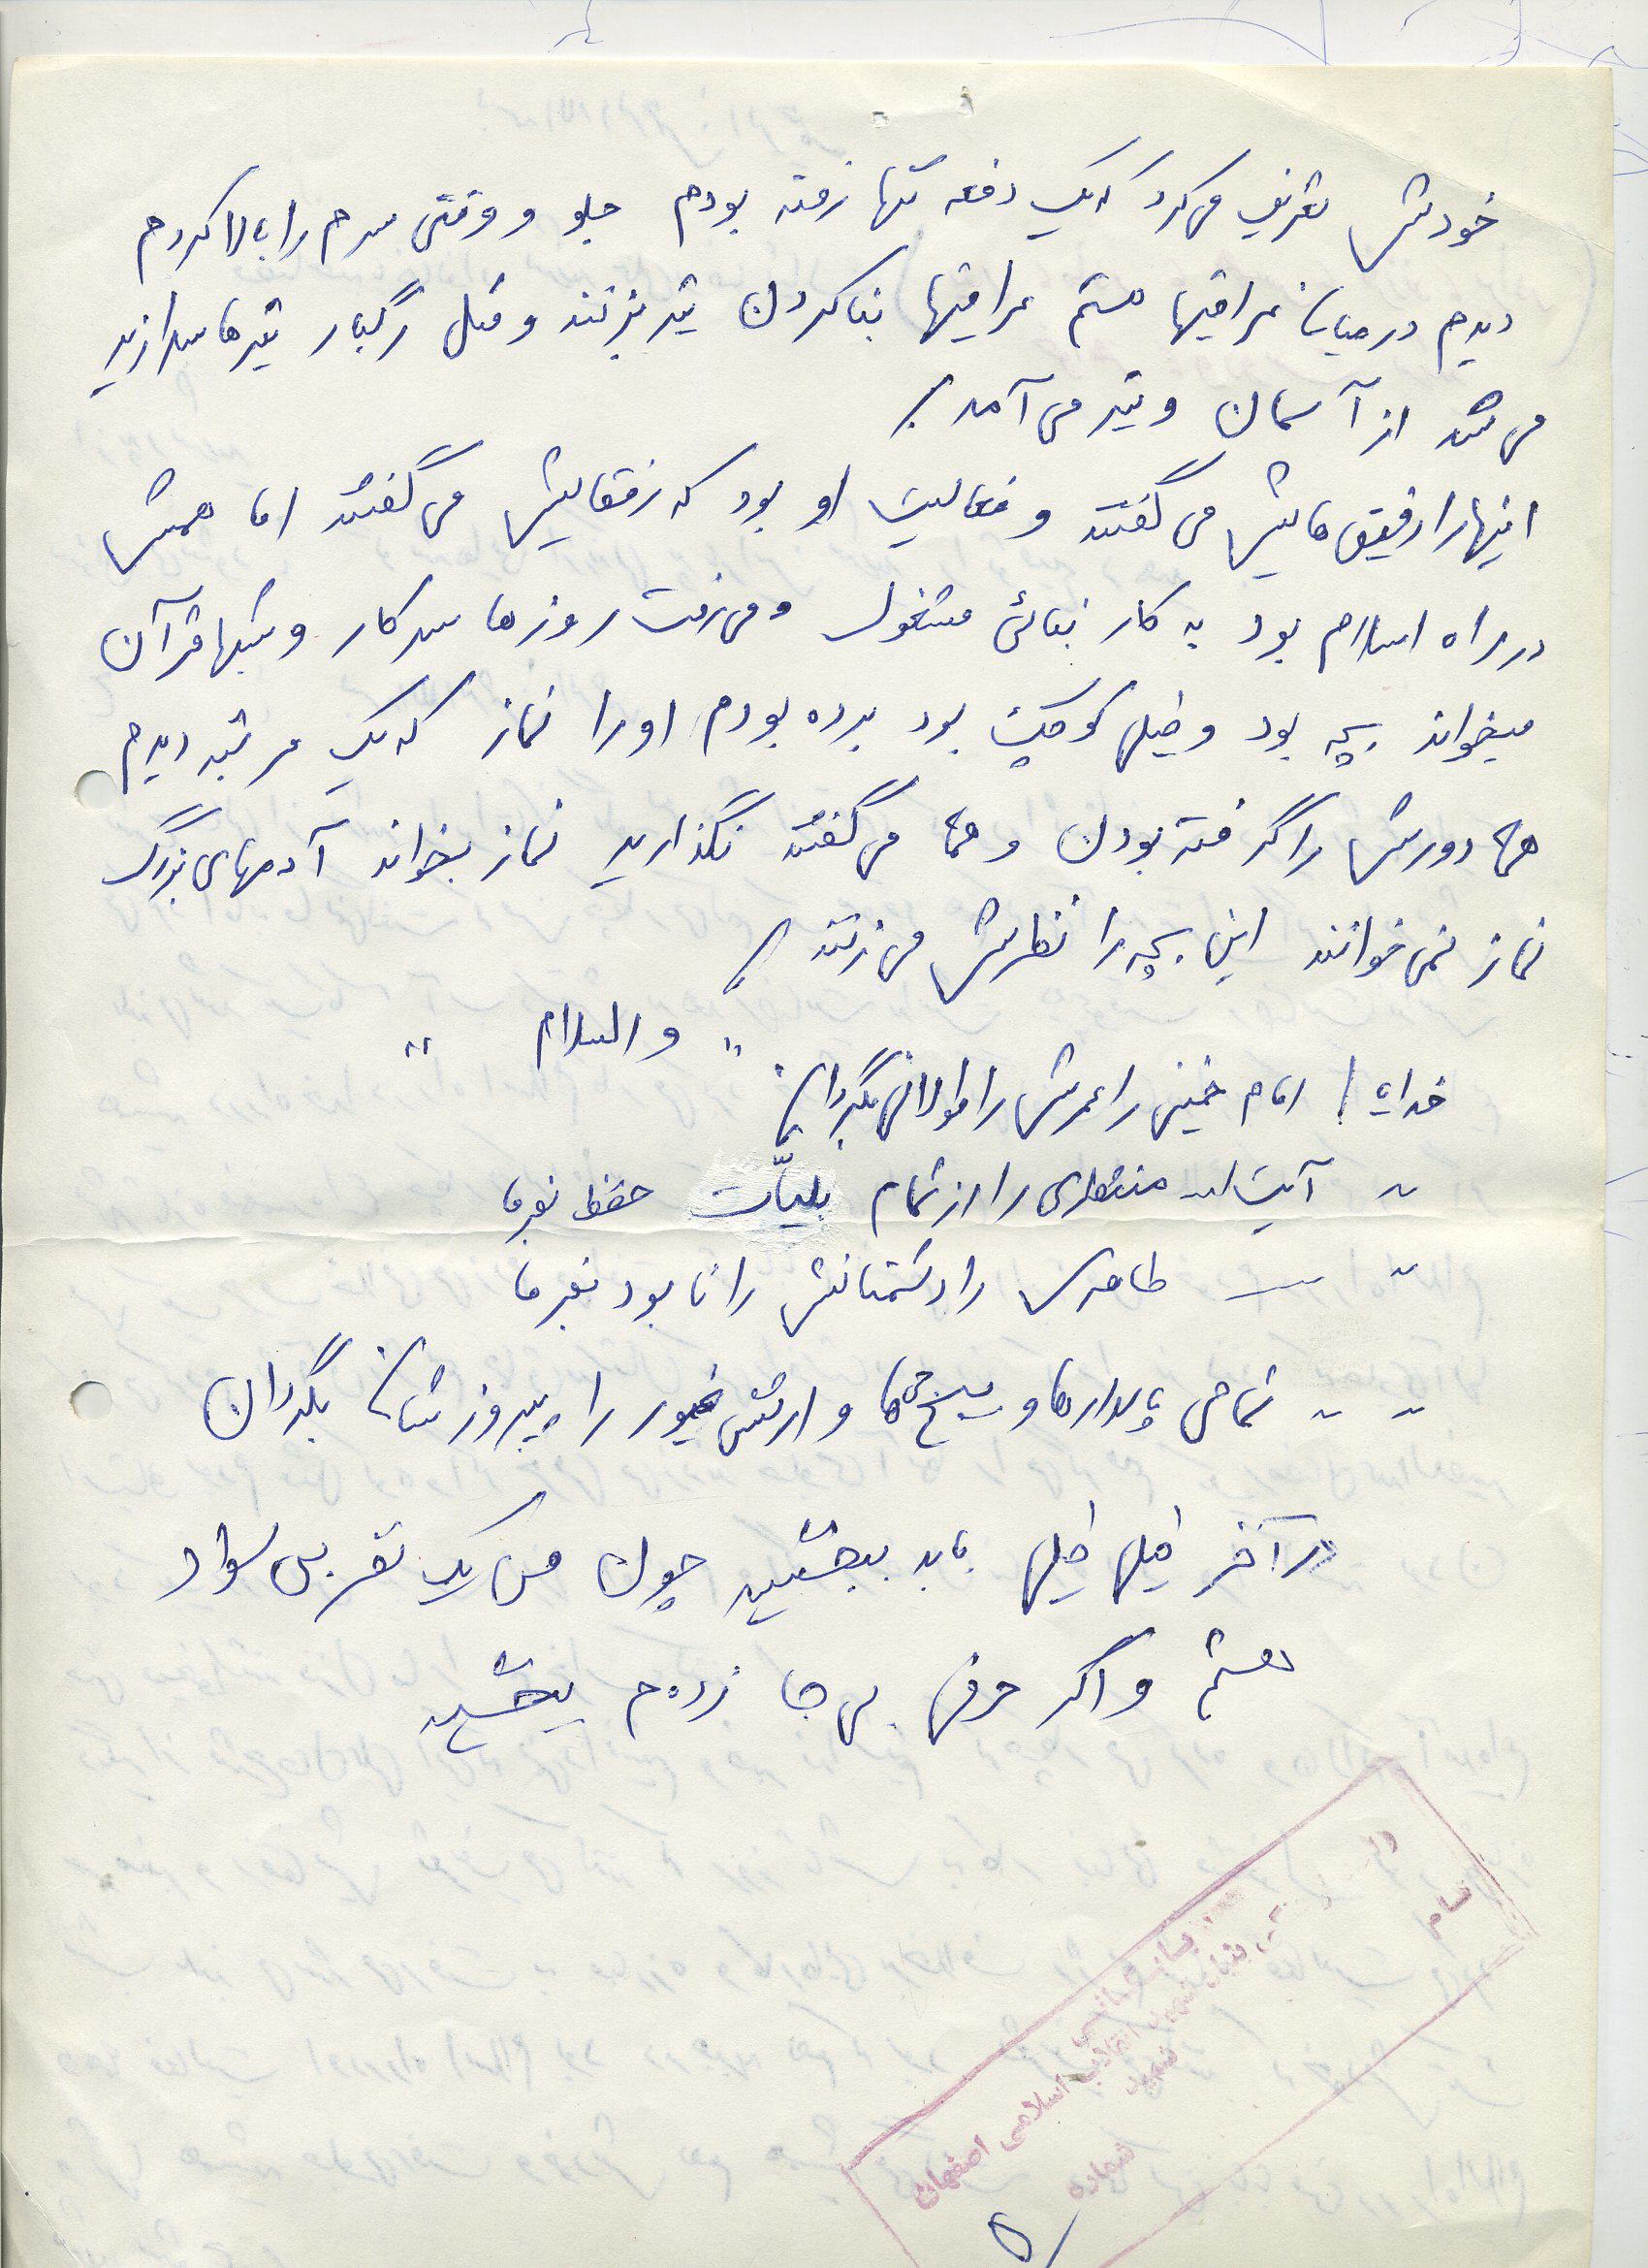 خودش تعریف می‌کرد که یک دفعه تنها رفته بودم جلو و وقتی سرم را بالا کردم
دیدم در میان عراقیها هستم عراقیها بنا کردن تیر بزنند و مثل رگبار تیرها سرازیر
می شد از آسمان و تیر می آمد.
اینها را رفیق هایش می گفتند و فعالیت او بود که رفقایش می گفتند اما همش
در راه اسلام بود به کار بنائی مشغول و می رفت روزها سر کار و شبها قرآن
میخواند بچه بود و خیلی کوچک بود برده بودم او را نماز که یک مرتبه دیدم
همه دورش را گرفته بودن و همه می گفتند نگذارید نماز بخواند آدمهای بزرگ
نماز نمی خوانند این بچه را نظرش می زنند.
" والسلام "
خدایا! امام خمینی را عمرش را طولانی بگردان.
〃 آیت‌الله منتظری را از تمام بلیّات حفظ بفرما
〃 — طاهری را دشمنانش را نابود بفرما
〃 〃 تمامی پاسدارها و بسیجی ها و ارتش غیور را پیروزشان بگردان
در آخر خیلی خیلی باید ببخشید چون من یک نفر بی سواد
هستم و اگر حرفی بی جا زده‌م ببخشید
بنیاد شهید انقلاب اسلامی اصفهان
نام
شهید
شماره
۵